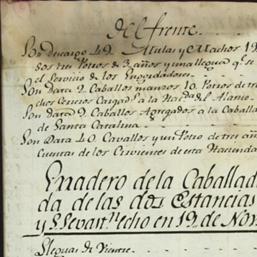 del frente.
Son de cargo 49 Mulas y Machos 19
sos tres Potros de 3 años y una llegua qe se
el Servicio de los Engordadores.
Son Data 2 Caballos mansos 10. Potros de tre
chos Cerreros Cargads a la Hacda del Alamo.
Son Data 9 Caballos Agregados a la Caballa
de Santa Catalina.
Son Data 40 Cavallos y un Potro de tres añ
Cuenta de los Cirvientes de esta Hacienda
Enadero de la Caballad
da de las dos Estancias
y Se levantn echo en 19 de Nov
Lleguas de Vientre.